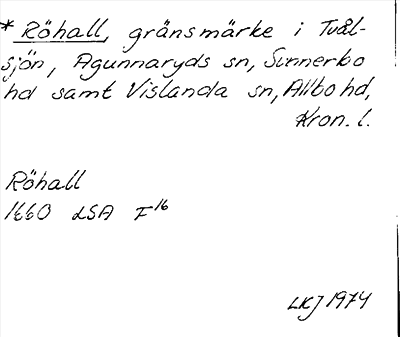 * Röhall, gränsmärke i Tvål-
sjön, Agunnaryds sn, Sunnerbo
hd samt Vislanda sn, Allbo hd,
Kron. l.
Röhall
1660 LSA F16
LKJ 1974